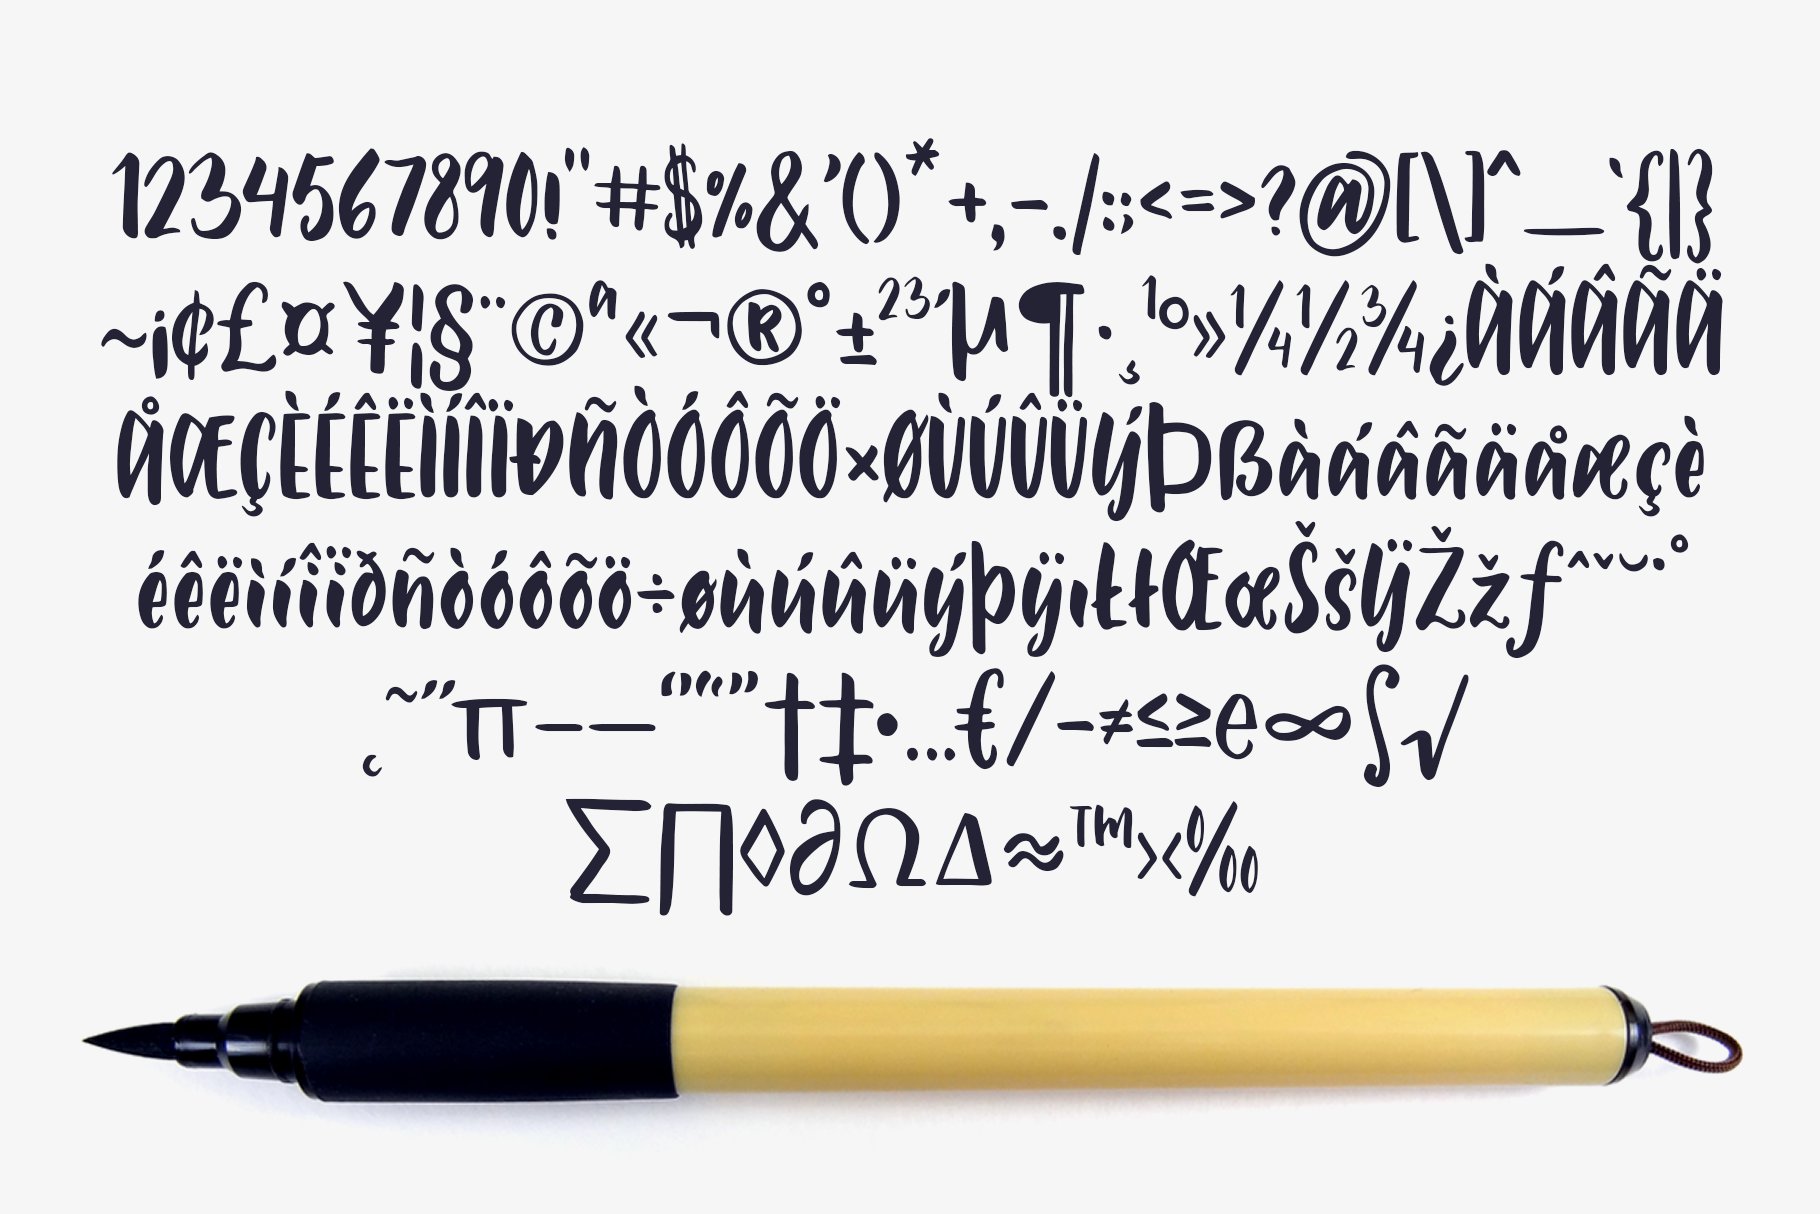 1234567890!"#$%&'()*+,-./:;<=>?@[\]^_`{|}
~¡¢£¤¥¦§¨©ª«¬®°±²³´µ¶·¸¹º»¼½¾¿ÀÁÂÃÄ
ÅÆÇÈÉÊËÌÍÎÏÐÑÒÓÔÕÖרÙÚÛÜÝÞßàáâãäåæçè
éêëìíîïðñòóôõö÷øùúûüýþÿıŁłŒœŠšŸŽžƒˆˇ˘˙˚
˛˜˝π–—‘’“‘“”†‡•…€⁄−≠≤≥℮∞∫√
∑∏◊∂Ω∆≈™›‹‰